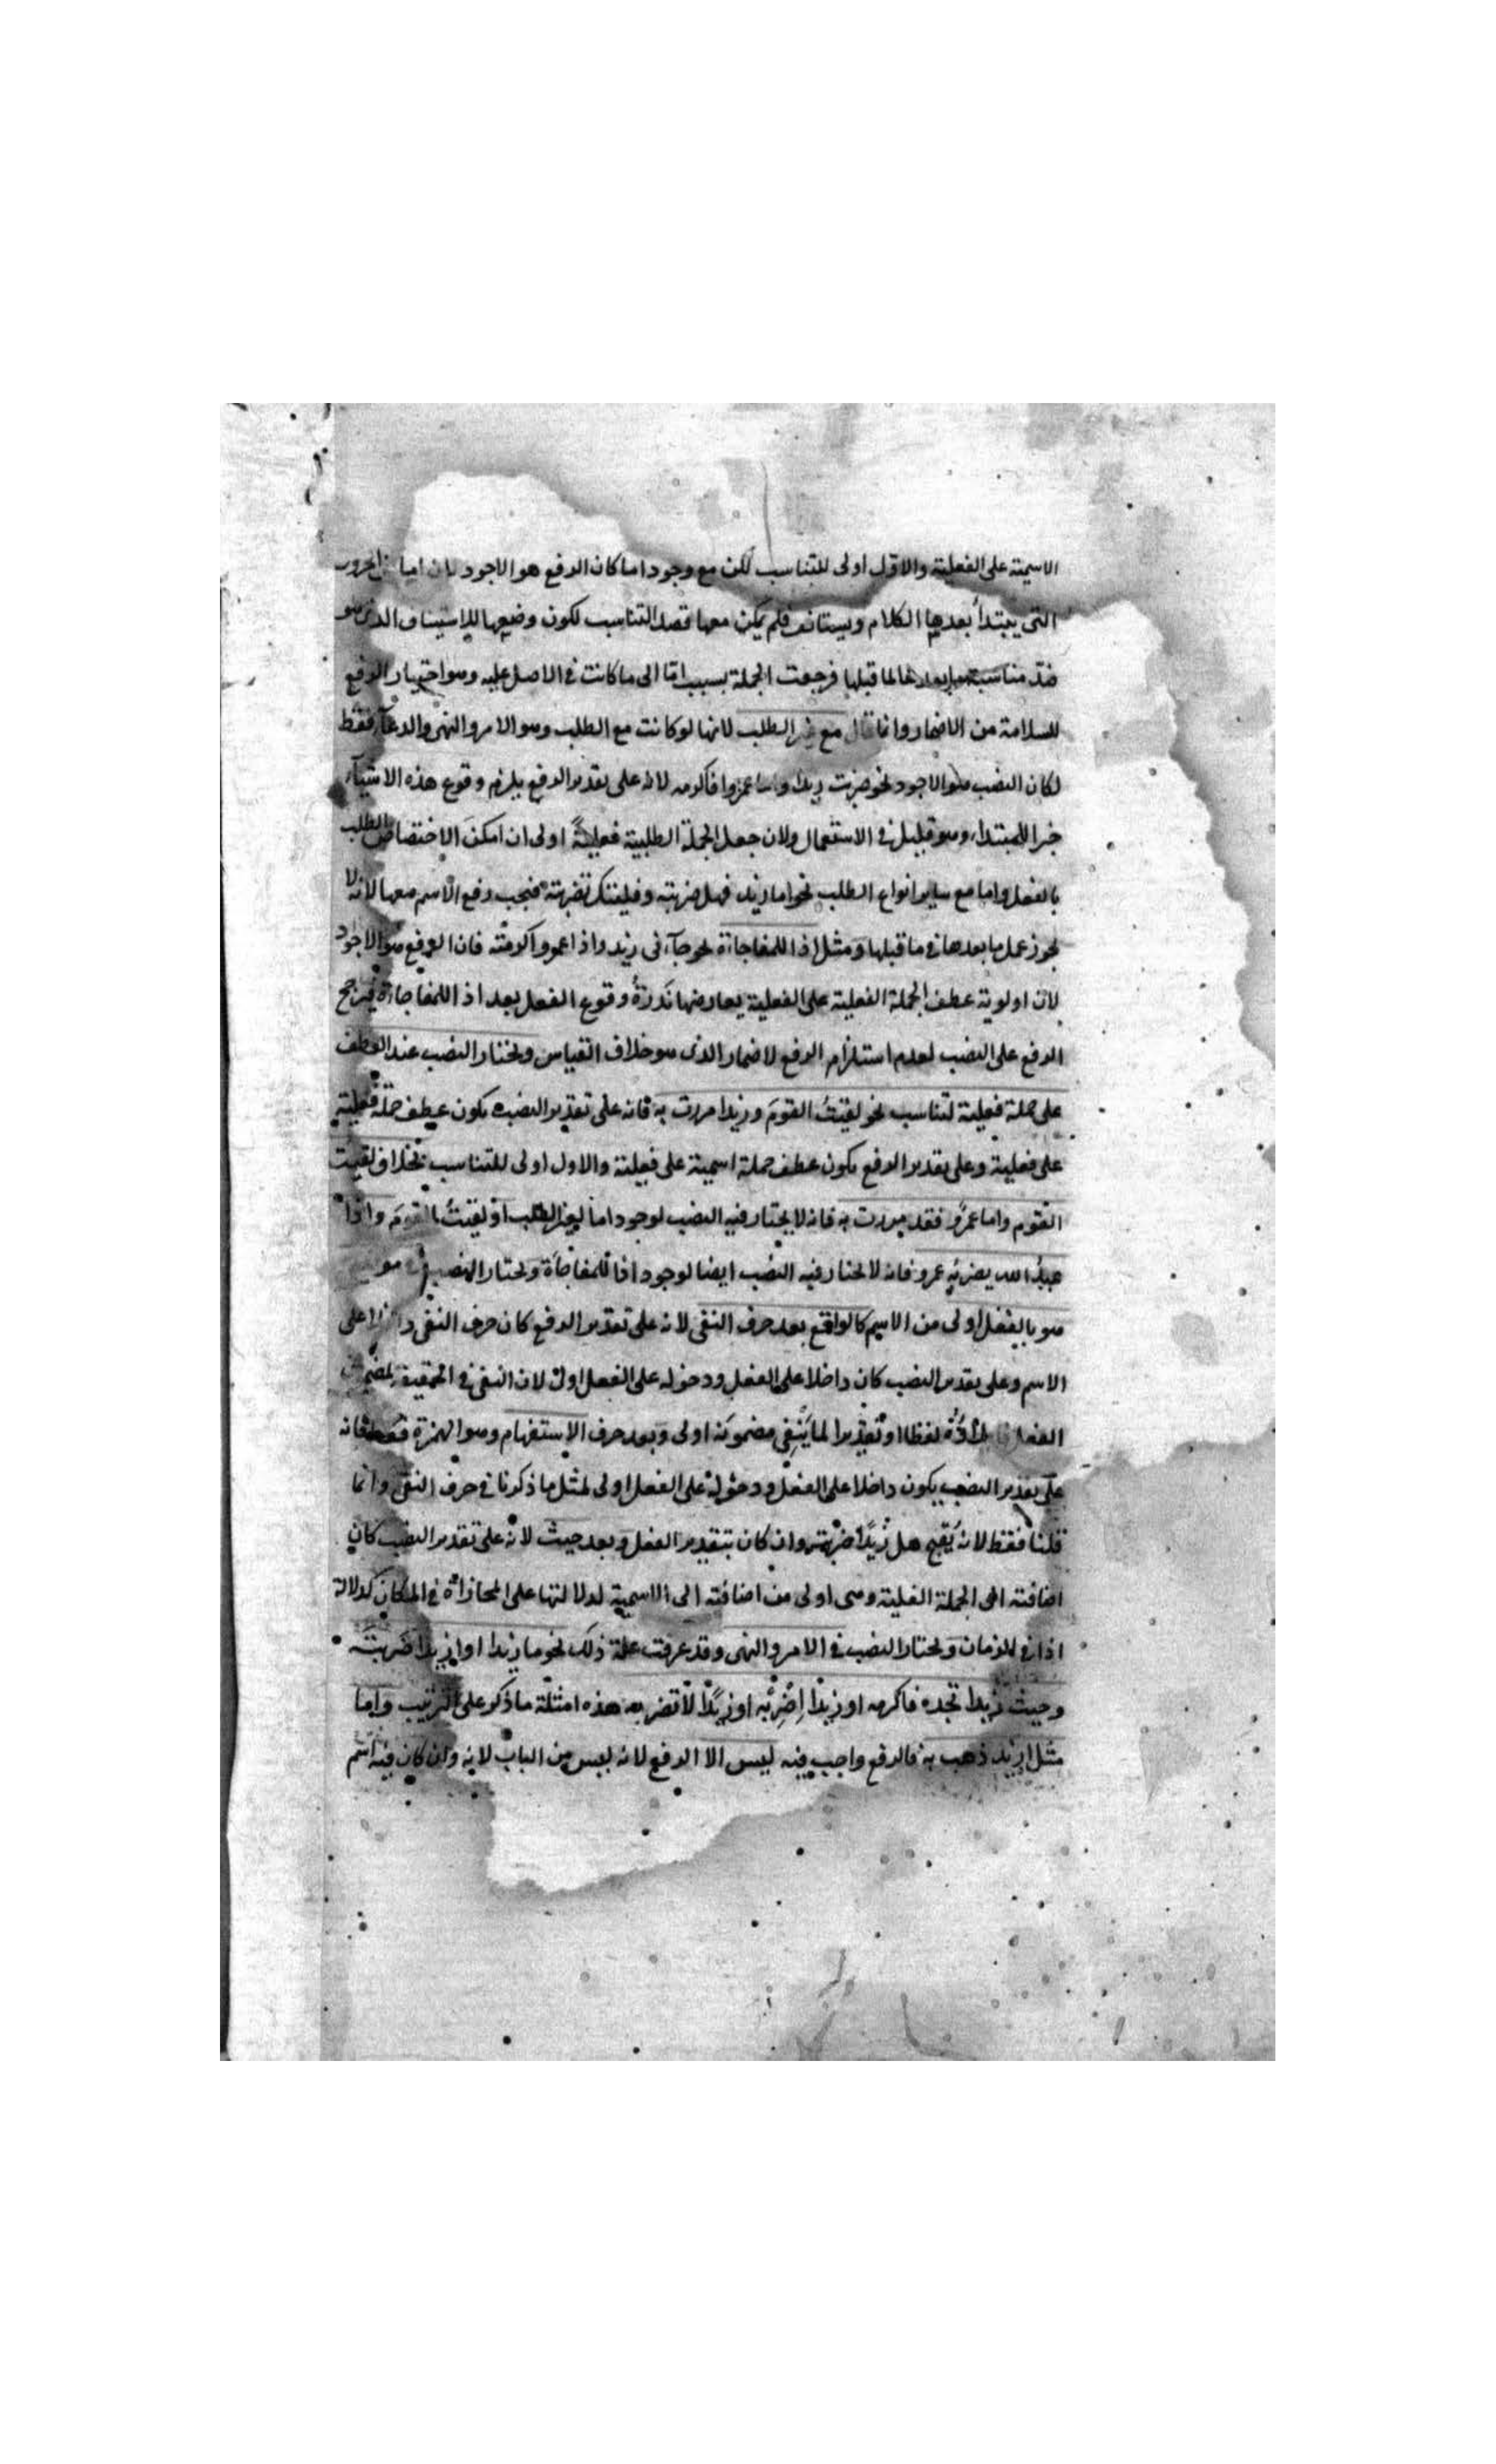 الاسمية على الفعلية والاول اولى للتناسب لكن مع وجود اما كان الرفع هو الاجود لان اما من الحروف
التى يبتدأ بعدها الكلام ويستانف فلم يمكن معها قصد التناسب لكون وضعها للاستيناف الذى هو
ضد مناسبة ما بعدها لما قبلها فرجعت الجملة بسبب امّا الى ما كانت فى الاصل عليه وهو اختيار الرفع
للسلامة من الاضمار وانما قال مع غير الطلب لانها لو كانت مع الطلب وهو الامر والنهى والدعآء فقط
لكان النصب هو الاجود نحو ضربت زيدا واما عمروا فاكرمه لانه على تقدير الرفع يلزم وقوع هذه الاشيآء
خبرا للمبتداء وهو قليل فى الاستعمال ولان جعل الجملة الطلبية فعليةً اولى ان امكنَ الاختصاص الطلب
بالفعل واما مع ساير انواع الطلب نحو اما زيد فهل ضربته وفليتك تضربته فيجب رفع الاسم معها لانه لا
يجوز عمل ما بعدها فى ما قبلها ومثل اذا للمفاجاة نحو جآءنى زيد واذا عمرو اكرمته فان الرفع هو الاجود
لان اولوية عطف الجملة الفعلية على الفعلية يعارضها نَدرَةُ وقوع الفعل بعد اذا للمفاجاءة فيرجح
الرفع على النصب لعدم استلزام الرفع لاضمار الذى هو خلاف القياس ويختار النصب عند العطف
على جملة فعلية لتناسب نحو لقيتُ القومَ وزيدا مررت به فانه على تقدير النصب يكون عطف جملة فعلية
على فعلية وعلى تقدير الرفع يكون عطف جملة اسمية على فعلية والاول اولى للتناسب بخلاف لقيت
القوم واما عمرو فقد مررت به فانه لا يختار فيه النصب لوجود اما لغير الطلب او لقيتُ القومَ واذا
عبدُ الله يضربُه عمرو فانه لا يختار فيه النصب ايضا لوجود اذا للمفاجأة ويختار النصب فى مو
هو بالفعل اولى من الاسم كالواقع بعد حرف النفى لانه على تقدير الرفع كان حرف النفى داخلا على
الاسم وعلى تقدير النصب كان داخلا على الفعل ودخوله على الفعل اولى لان النفى فى الحقيقة لمضمون
الفعل لفظا او تقديرا لما يَنفِى مضمونَه اولى وبعد حرف الاستفهام وهو الهمزة فقط فانه
على تقدير النصب يكون داخلا على الفعل ودخوله على الفعل اولى لمثل ما ذكرنا فى حرف النفى وانما
قلنا فقط لانه يُقبح هل زيدًا ضربته وان كان بتقدير الفعل وبعد حيث لانه على تقدير النصب كان
اضافته الى الجملة الفعلية وهى اولى من اضافته الى الاسمية لدلالتها على المجازاة فى المكان كدلالة
اذا فى الزمان ويختار النصب فى الامر والنهى وقد عرفت علة ذلك نحو ما زيدا او ازيدا ضربتَه
وحيث زيدا تجده فاكرمه او زيدًا اِضْرِبْه او زيدًا لا تضربه هذه امثلة ما ذكر على الترتيب واما
مثل ازيد ذهب به فالرفع واجب فيه ليس الا الرفع لانه ليس من الباب لانه وان كان فيه اسم